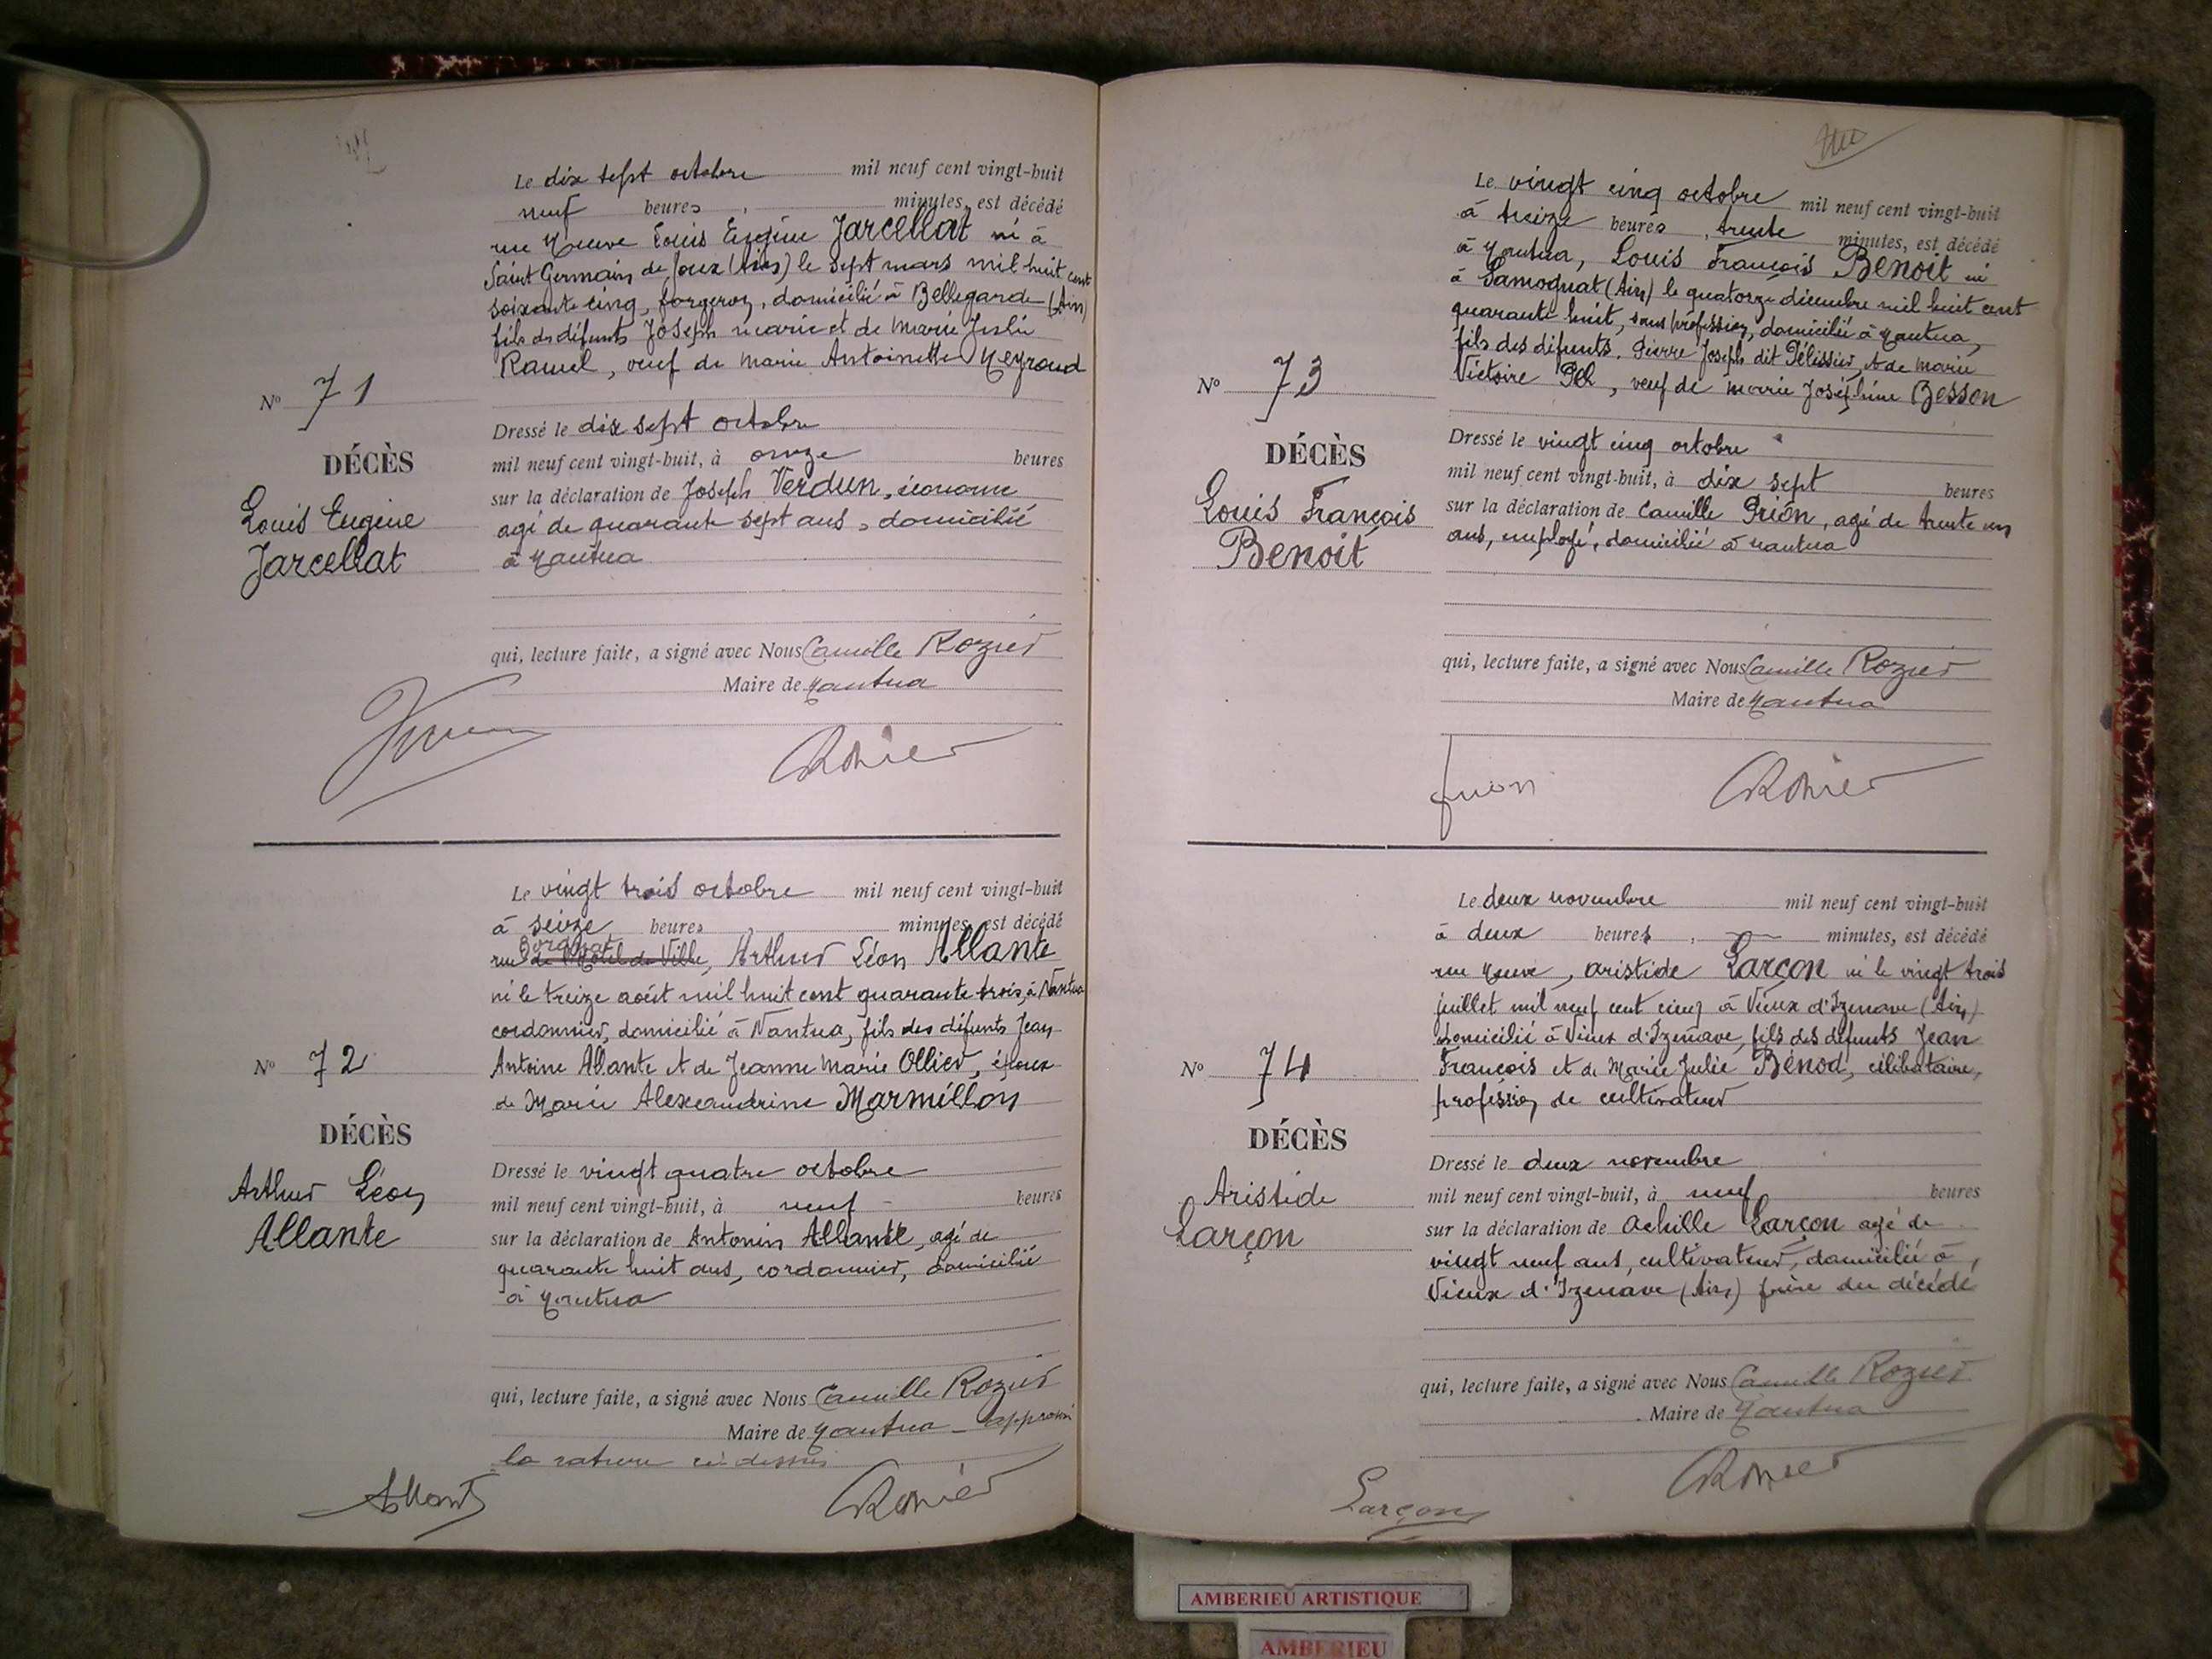 Le dix sept octobre mil neuf cent vingt-huit
neuf heures minutes, est décédé
rue Neuve Louis Eugène Jarcellat né à
Saint Germain de Joux (Ain) le sept mars mil huit cent
soixante cinq, forgeron, domicilié à Bellegarde (Ain)
fils des défunts Joseph marie et de Marie Julie
Ramel, veuf de Marie Antoinette Neyroud
N° 71
DÉCÈS
Louis Eugène
Jarcellat
Dressé le dix sept octobre
mil neuf cent vingt-huit, à onze heures
sur la déclaration de Joseph Verdun, économe
agé de quarante sept ans, domicilié
à Nantua
qui, lecture faite, a signé avec Nous Camille Rozier
Maire de Nantua
Le vingt trois octobre mil neuf cent vingt-huit
à seize heures minutes, est décédé
rue de l'Hôtel de Ville, Arthur Léon Allante
né le treize août mil huit cent quarante trois, à Nantua
cordonnier, domicilié à Nantua, fils des défunts Jean
Antoine Allante et de Jeanne Marie Ollier, époux
de Marie Alexandrine Marmillon
N° 72
DÉCÈS
Arthur Léon
Allante
Dressé le vingt quatre octobre
mil neuf cent vingt-huit, à neuf heures
sur la déclaration de Antonin Allante, agé de
quarante huit ans, cordonnier, domicilié
à Nantua
qui, lecture faite, a signé avec Nous Camille Rozier
Maire de Nantua - approuvé
la rature ci dessus
Allante
Rozier
Le vingt cinq octobre mil neuf cent vingt-huit
à treize heures, trente minutes, est décédé
à Nantua, Louis François Benoit né
à Samognat (Ain) le quatorze décembre mil huit cent
quarante huit, sans profession, domicilié à Nantua,
fils des défunts, Pierre Joseph dit Pélissier, et de Marie
Victoire , veuf de Marie Joséphine Besson
N° 73
DÉCÈS
Louis François
Benoit
Dressé le vingt cinq octobre
mil neuf cent vingt-huit, à dix sept heures
sur la déclaration de Camille Prion, agé de trente un
ans, employé, domicilié à Nantua
qui, lecture faite, a signé avec Nous Camille Rozier
Maire de Nantua
Prion
Rozier
Le deux novembre mil neuf cent vingt-huit
à deux heures, minutes, est décédé
rue Neuve, Aristide Larçon né le vingt trois
juillet mil neuf cent cinq à Vieux d'Izenave (Ain)
domicilié à Vieux d'Izenave, fils des défunts Jean
François et de Marie Julie Bénod, célibataire,
profession de cultivateur
N° 74
DÉCÈS
Aristide
Larçon
Dressé le deux novembre
mil neuf cent vingt-huit, à neuf heures
sur la déclaration de Achille Larçon agé de
vingt neuf ans, cultivateur, domicilié à
Vieux d'Izenave (Ain) frère du décédé
qui, lecture faite, a signé avec Nous Camille Rozier
Maire de Nantua
Larçon
Rozier
AMBERIEU ARTISTIQUE
AMBERIEU